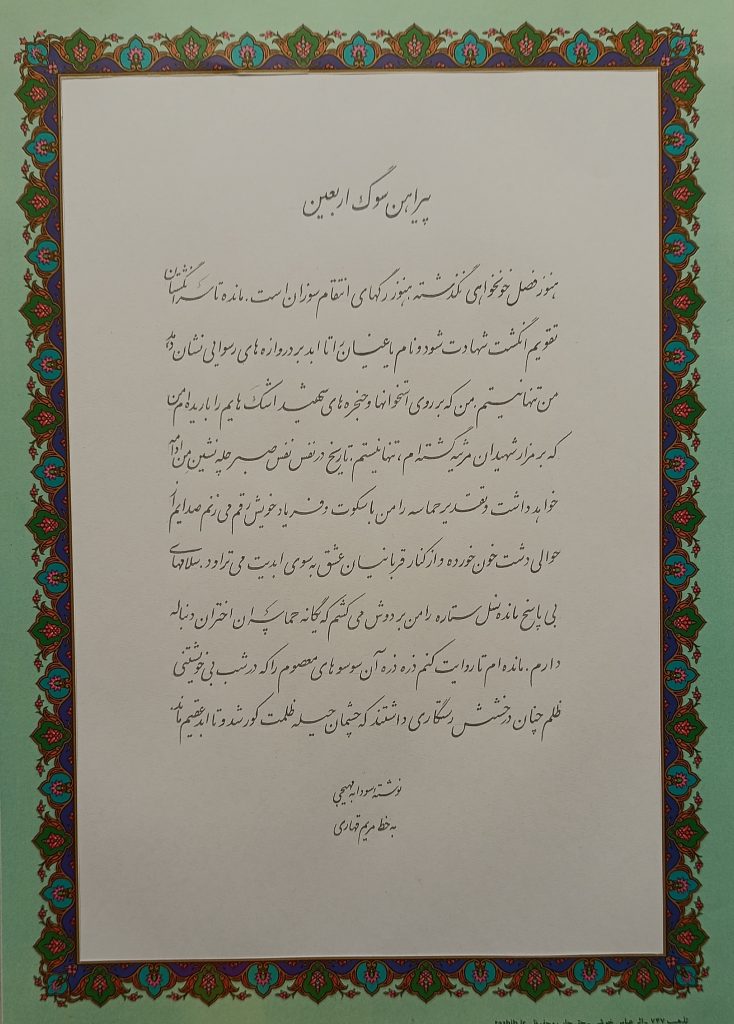 پیراهن سوگ اربعین
هنوز فصل خونخواهی نگذشته. هنوز رگهای انتقام سوزان است. مانده تا سرانگشتان
تقویم انگشت شهادت شود و نام یاغیان را تا ابد بر دروازه های رسوایی نشان دهد
من تنها نیستم. من که بر روی استخوانها و حنجره های شهید اشک هایم را باریده ام. من
که بر مزار شهیدان مرثیه گشته ام، تنها نیستم. تاریخ در نفس نفس صبر چله نشین من ادامه
خواهد داشت و تقدیر حماسه را من با سکوت و فریاد خویش رقم می زنم صدایم از
حوالی دشت خون خورده و از کنار قربانیان عشق به سوی ابدیت می تراود. سلامهای
بی پاسخ مانده نسل ستاره را من بر دوش می کشم که یگانه حماسه پرداز اختران دنباله
دارم. مانده ام تا روایت کنم ذره ذره آن سوسوهای معصوم را که در شب بی خویشتنی
ظلم چنان درخشش رستگاری داشتند که چشمان حیله ظلمت کور شد و تا ابد عقیم ماند.
نوشته سودابه مهیجی
به خط مریم قهاری